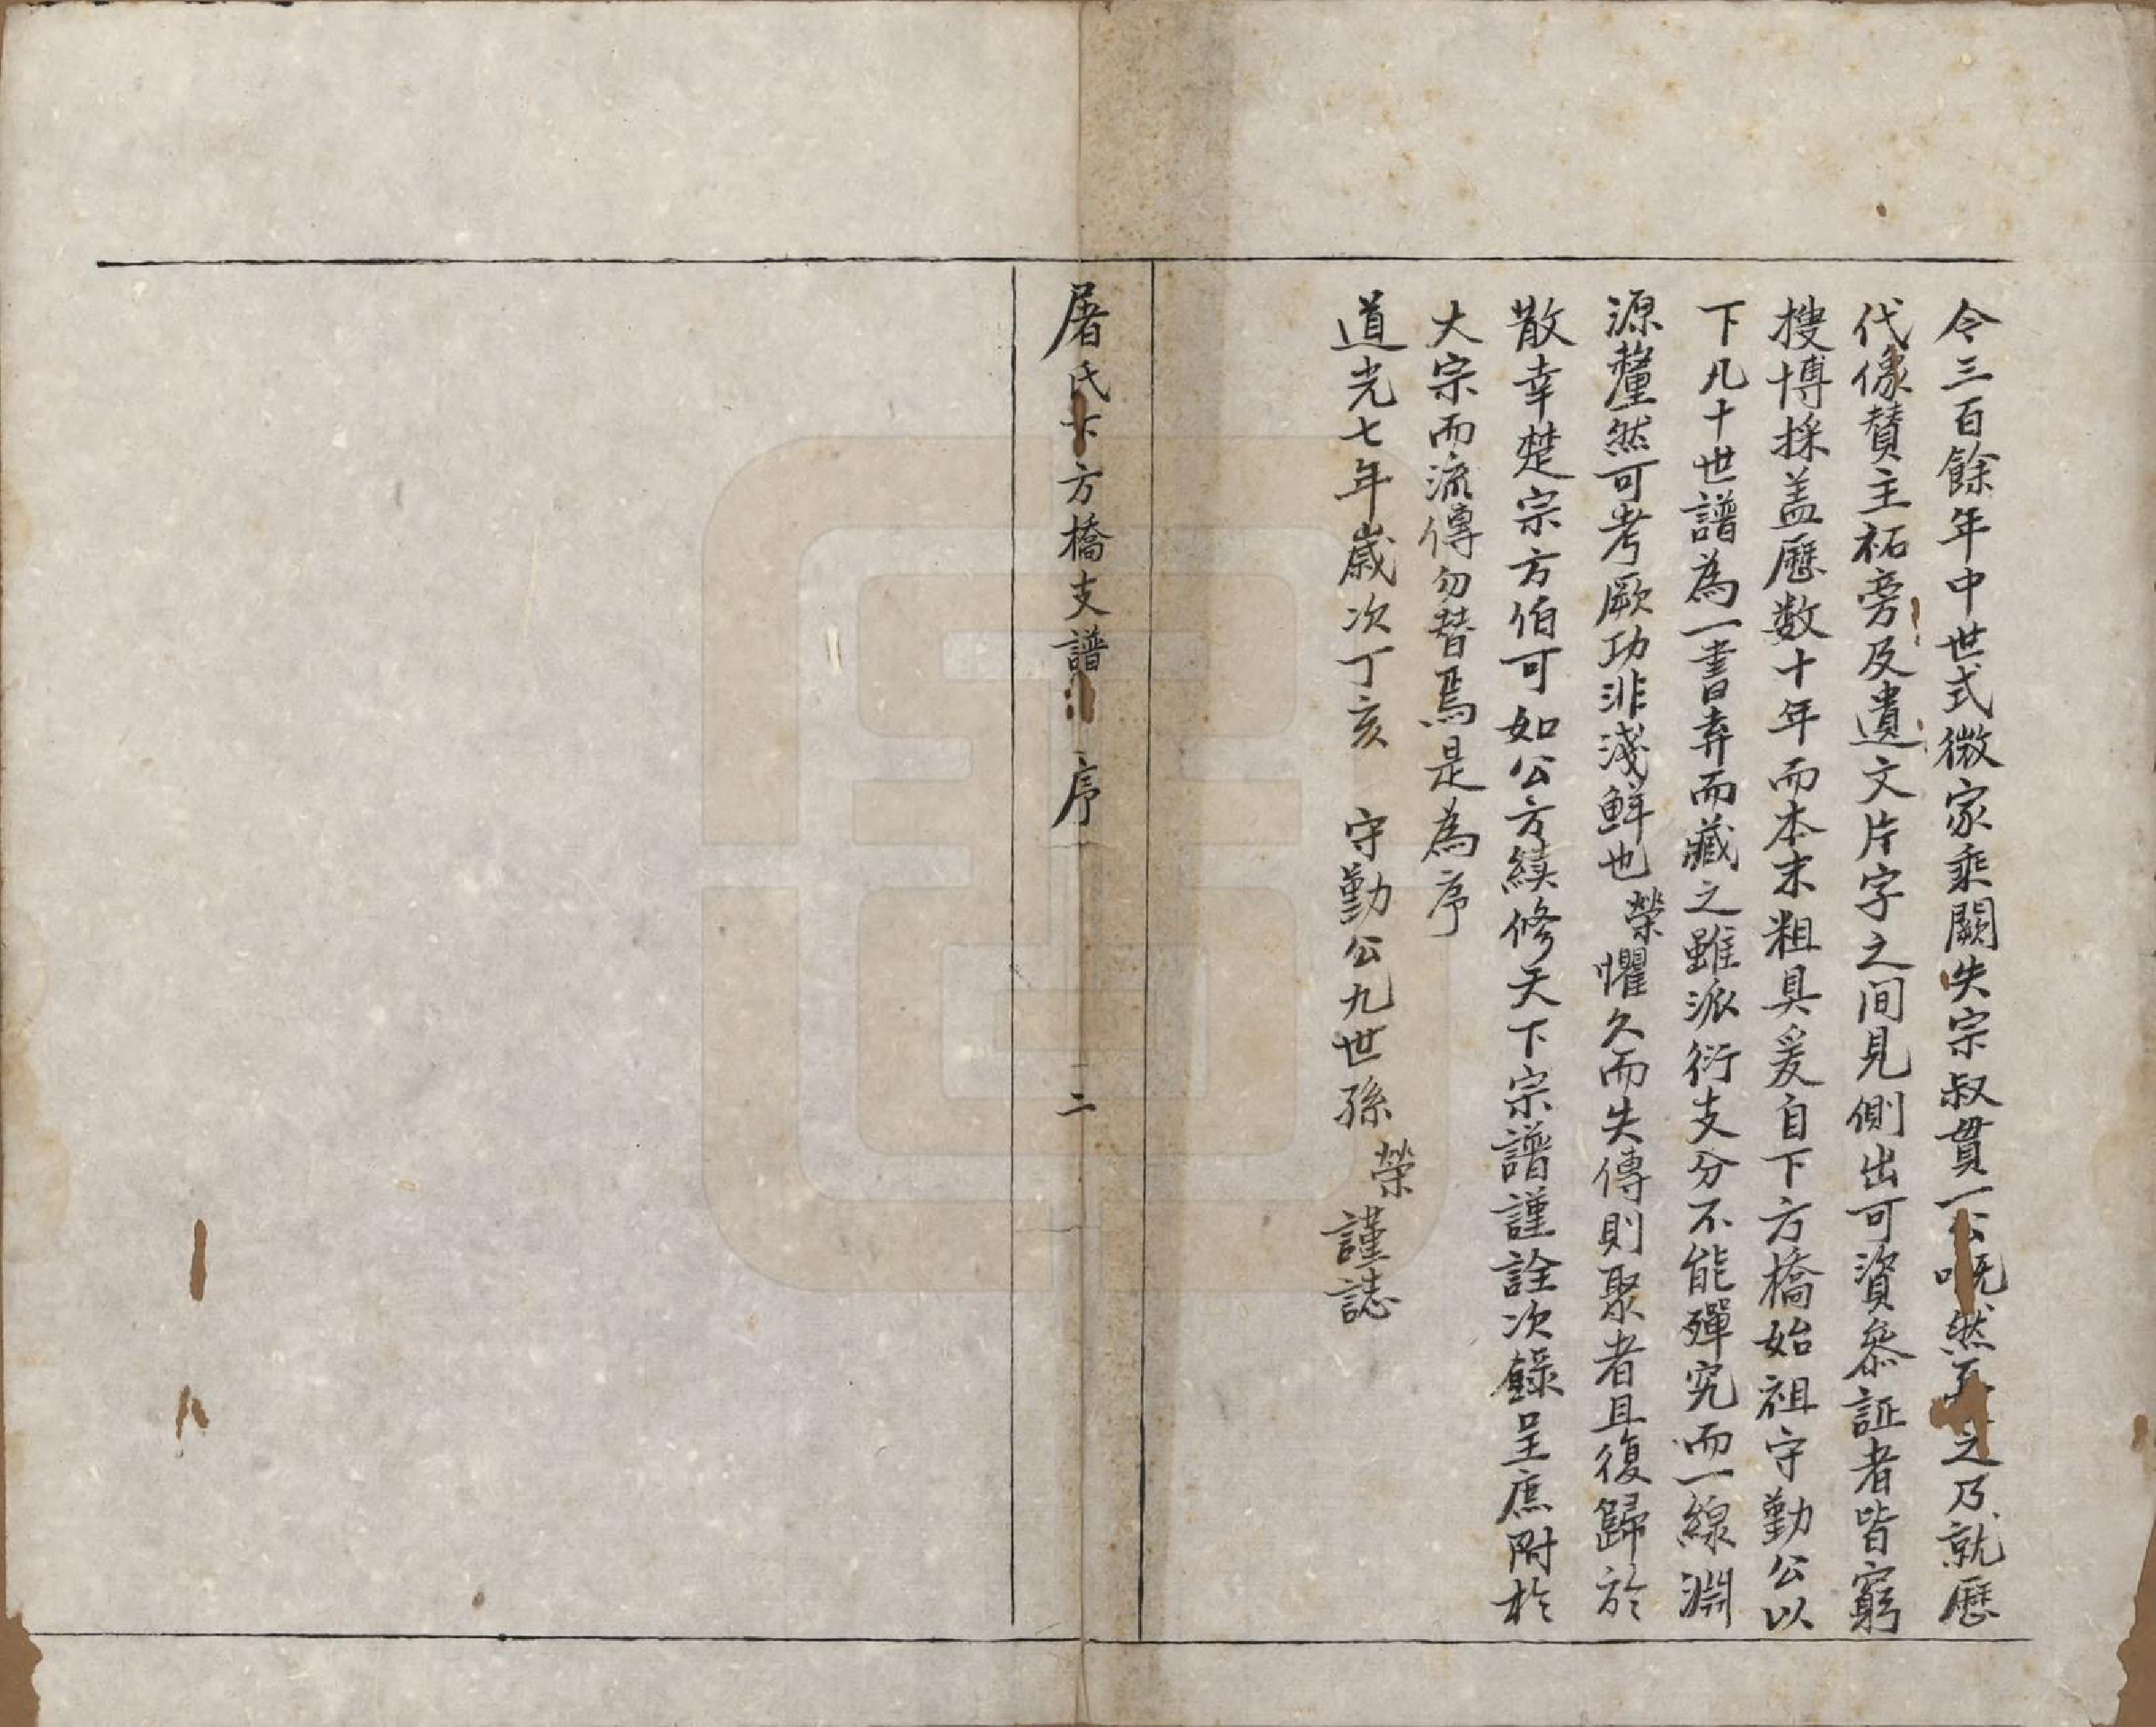 令三百餘年中世式微家乘闕失宗叔貫一公嘅然
之乃就歷
代像賛主祏旁及遺文片字之间見側出可資叅証者皆窮
搜博採盖歷数十年而本末粗具爰自下方橋始祖守勤公以
下凡十世譜為一書弆而藏之雖派衍支分不能殫究而一線淵
源釐然可考厥功非淺鮮也榮懼久而失傳則聚者且復歸於
散幸楚宗方伯可如公方續修天下宗譜謹詮次錄呈庶附於
大宗而流傳勿替焉是為序
道光七年歲次丁亥　守勤公九世孫榮謹誌
屠氏下方橋支譜　序　二